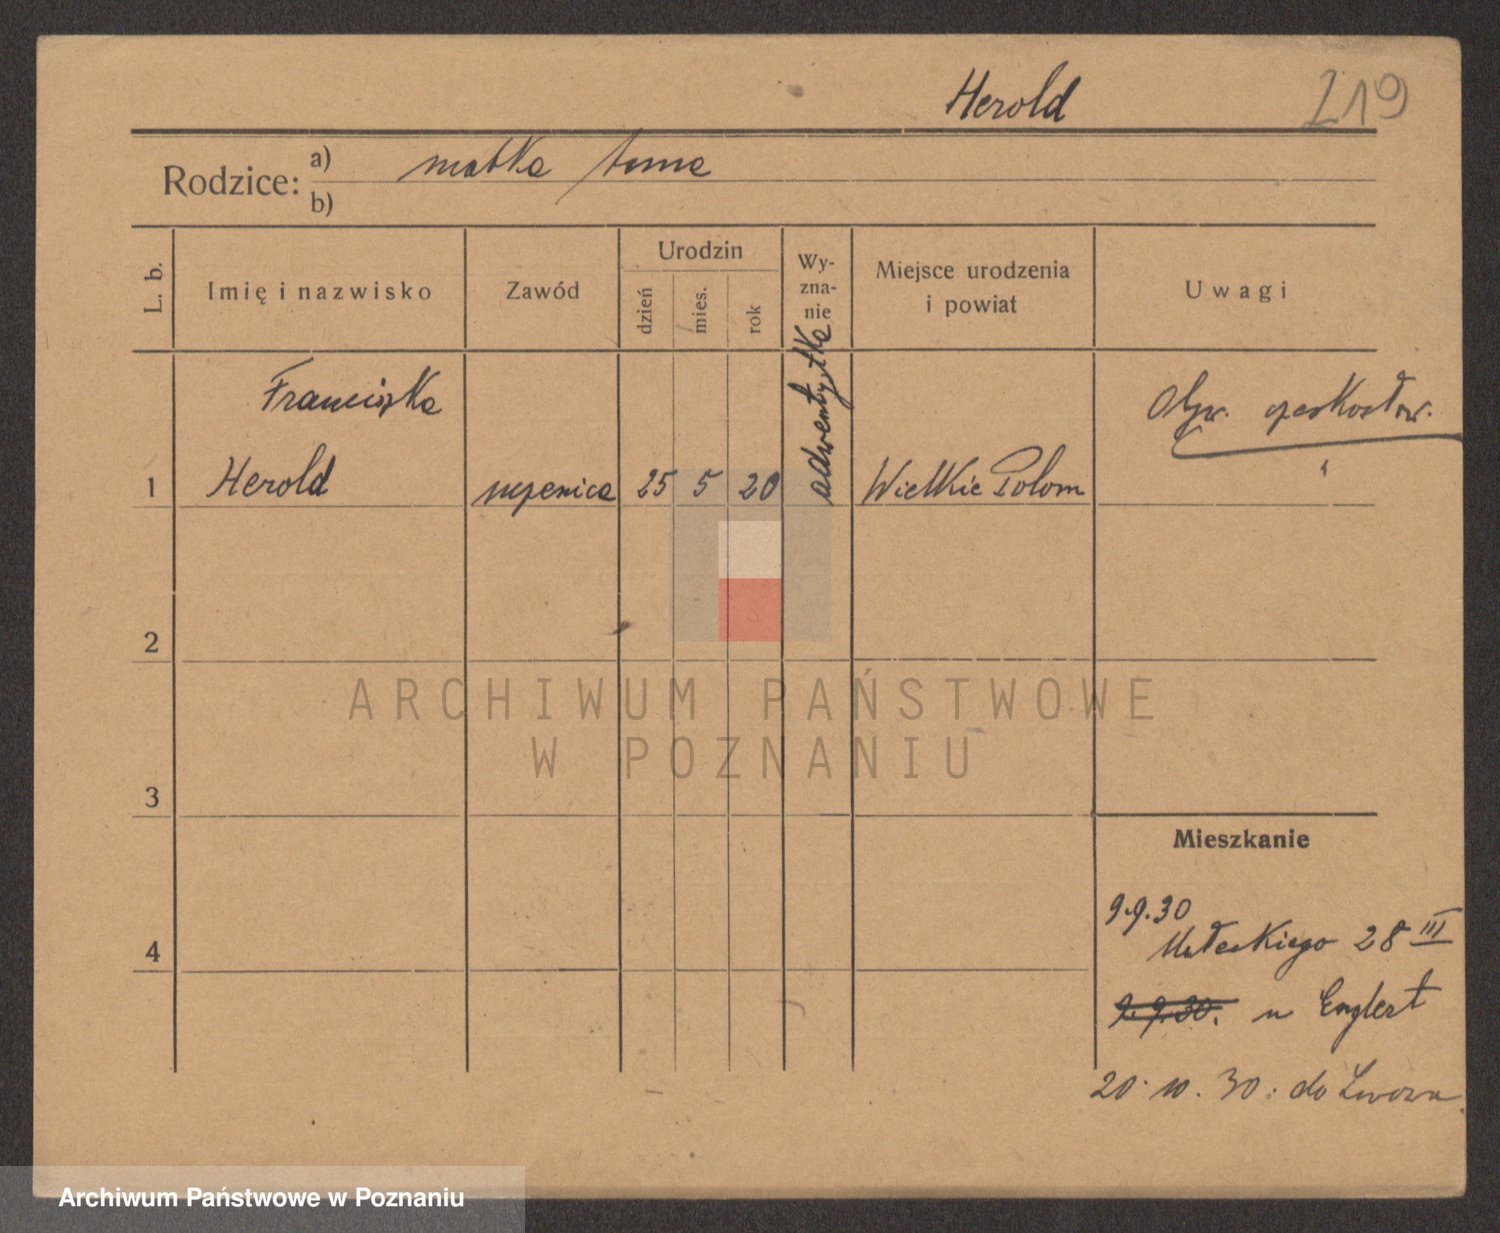 Herold
219
Rodzice:
a) matka
b)
L. b.
Imię i nazwisko
Zawód
Urodzin
dzień
mies.
rok
Wy-
zna-
nie
Miejsce urodzenia
i powiat
Uwagi
1
Franciszka
Herold
25
5
20
adwentystka
Wielkie Polom
Obyw. czeskosłow.
2
3
4
Mieszkanie
9.9.30
Małeckiego 28 III
9.9.30. u Englert
20.10.30. do Lwowa
ARCHIWUM PAŃSTWOWE
W POZNANIU
Archiwum Państwowe w Poznaniu